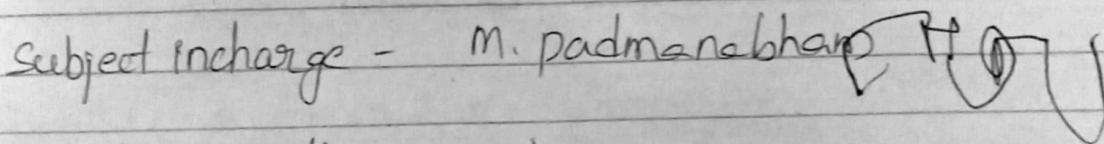 Subject incharge - M. Padmanabhan